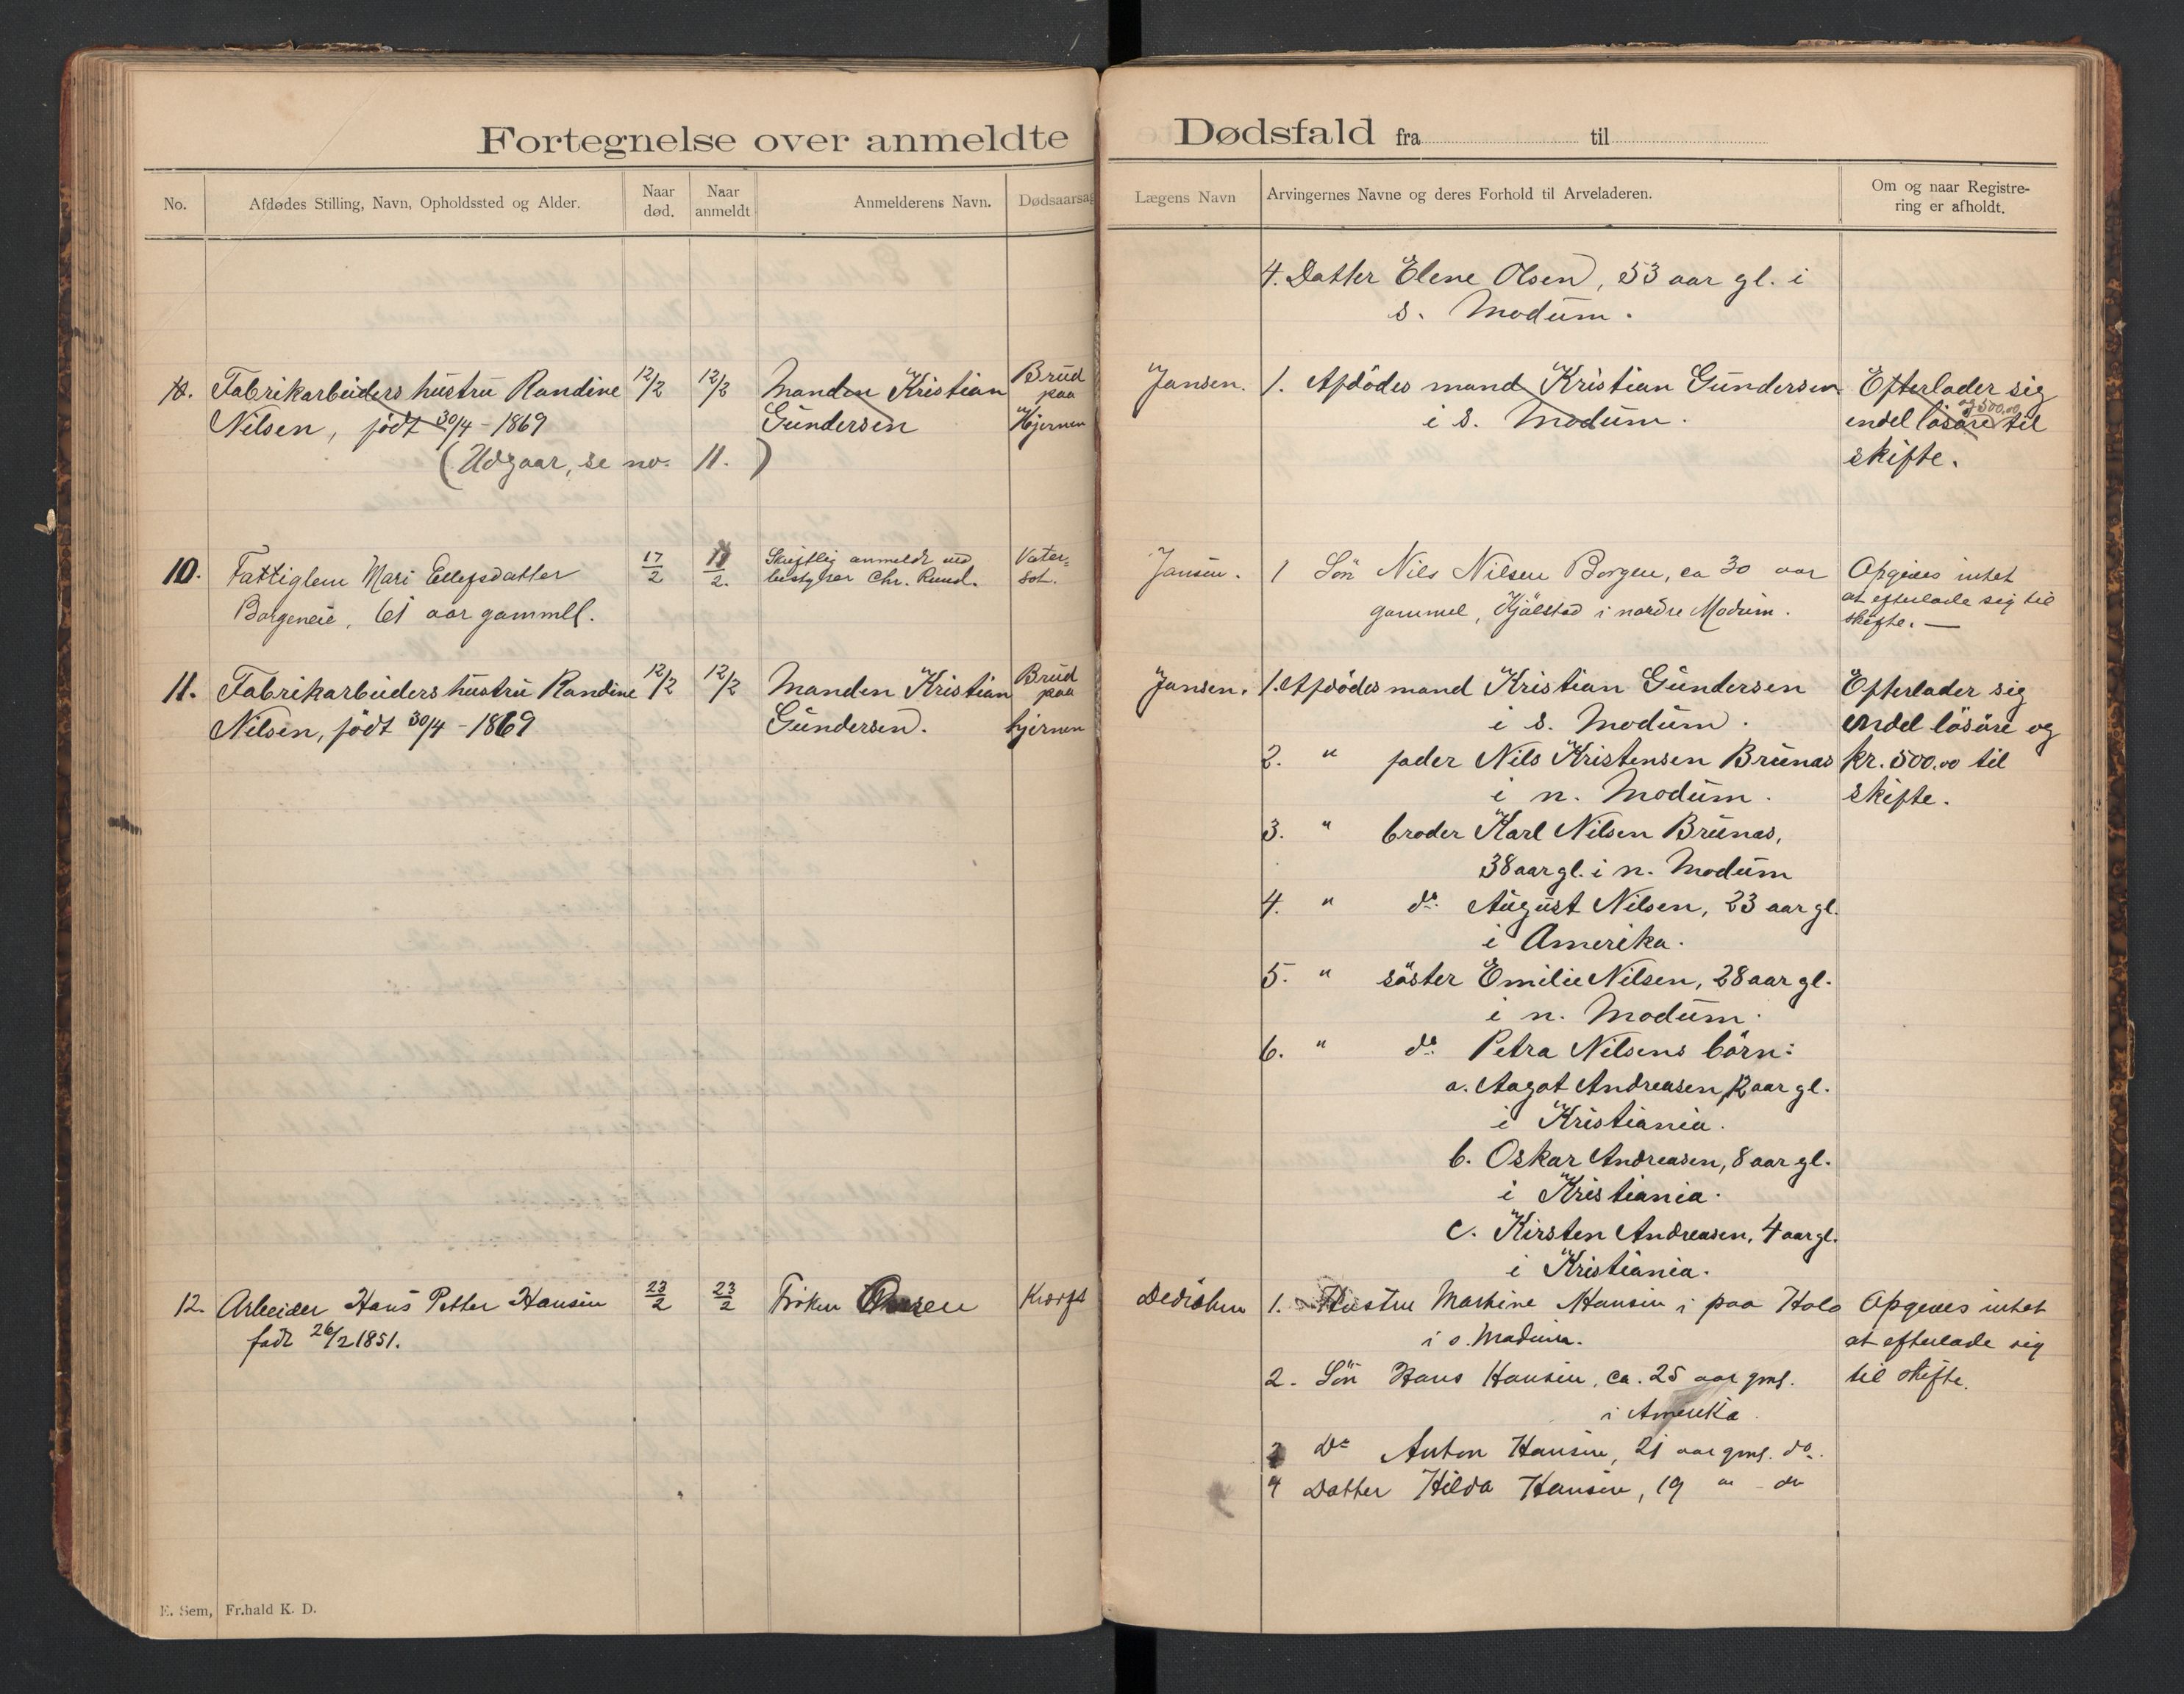 Fortegnelse over anmeldte Dødsfald fra til
No.
Afdødes Stilling, Navn, Opholdssted og Alder.
Naar død.
Naar anmeldt
Anmelderens Navn.
Dødsaarsag
Lægens Navn
Arvingernes Navne og deres Forhold til Arveladeren.
Om og naar Registre-
ring er afholdt.
4. Datter Elene Olsen, 53 aar gl. i
s. Modum.
10. Fabrikarbeiders hustru Randine 12/2 12/2 Manden Kristian Brud
Nilsen, født 30/4 - 1869 Gundersen paa
Hjernen
(Udgaar, se no. 11.)
Jansen. 1. Afdödes mand Kristian Gundersen Efterlader sig
i s. Modum. endel lösöre og 500.00 til
skifte.
10. Fattiglem Mari Ellefsdatter 17/2 18/2. Skriftlig anmeldt ved Vater-
Borgeneie, 61 aar gammel. bestyrer Chr. Ruud. sot.
Jansen. 1 Sön Nils Nilsen Borgen, ca 30 aar Opgives intet
gammel, Kjölstad i nordre Modum. at efterlade sig til
skifte. —
11. Fabrikarbeiders hustru Randine 12/2 12/2 Manden Kristian Brud
Nilsen, født 30/4 - 1869 Gundersen. paa
hjernen
Jansen. 1. Afdödes mand Kristian Gundersen Efterlader sig
i s. Modum. endel lösöre og
2. " fader Nils Kristensen Brunas kr. 500.00 til
i n. Modum. skifte.
3. " broder Karl Nilsen Brunas,
38 aar gl. i n. Modum
4. " do. August Nilsen, 23 aar gl.
i Amerika.
5. " söster Emilie Nilsen, 28 aar gl.
i n. Modum.
6. " do. Petra Nilsens börn:
a. Aagot Andreasen, 12 aar gl.
i Kristiania.
b. Oskar Andreasen, 8 aar gl.
i Kristiania.
c. Kirsten Andreasen, 4 aar gl.
i Kristiania.
12. Arbeider Hans Petter Hansen 23/2 23/2 Fröken Kræft
født 26/2 1851.
1. Hustru Martine Hansen i paa Hole Opgives intet
i s. Modum. at efterlade sig
2. Sön Hans Hansen, ca. 25 aar gml. til skifte.
i Amerika.
3 Do Anton Hansen, 21 aar gml. do.
4 Datter Hilda Hansen, 19 " - do
E. Sem, Fr.hald K. D.